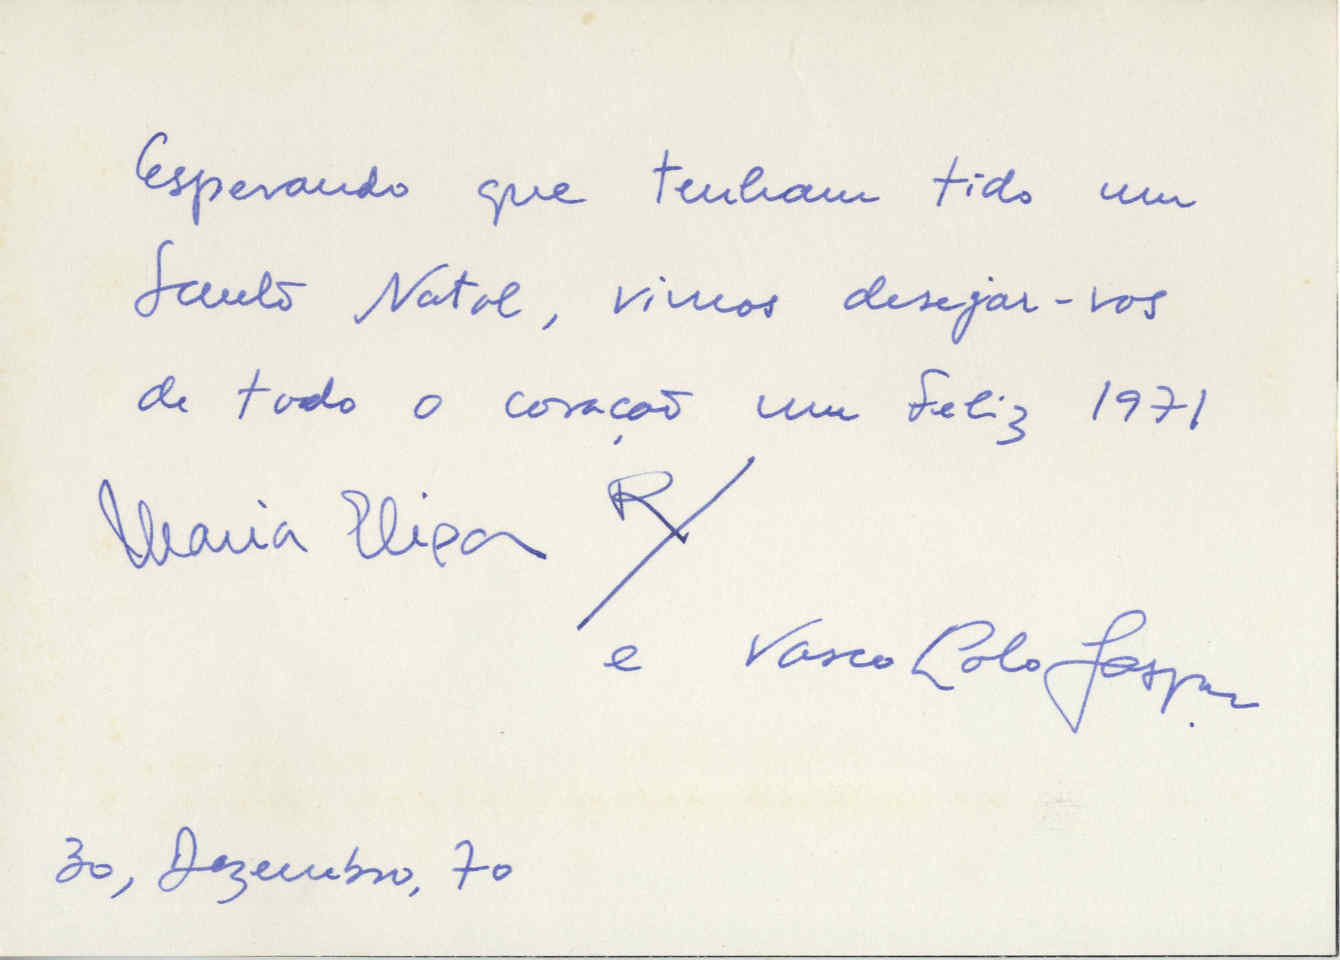 Esperando que tenham tido um
Santo Natal, vimos desejar-vos
de todo o coração um feliz 1971
Maria Elisa R/
e Vasco Lobo Gaspar
30, Dezembro, 70